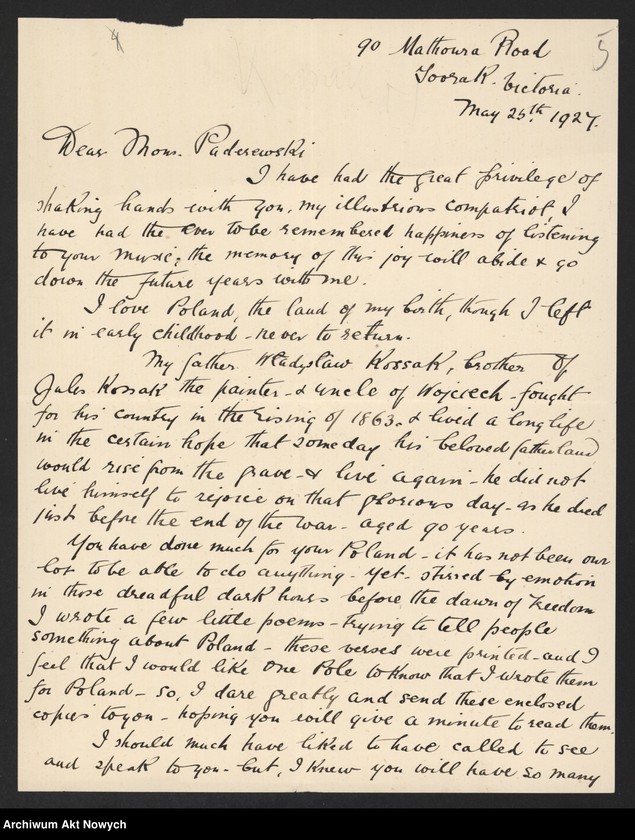 4
5
90 Mathoura Road
Toorak. Victoria.
May 25th. 1927.
Dear Mons. Paderewski
I have had the great privilege of
shaking hands with you, my illustrious compatriot, I
have had the ever to be remembered happiness of listening
to your music; the memory of this joy will abide & go
down the future years with me.
I love Poland, the land of my birth, though I left
it in early childhood - never to return.
My father Wladyslaw Kossak, brother of
Jules Kossak the painter - & uncle of Wojciech - fought
for his country in the rising of 1863. & lived a long life
in the certain hope that someday his beloved fatherland
would rise from the grave - & live again - he did not
live himself to rejoice on that glorious day - as he died
just before the end of the war - aged 90 years.
You have done much for your Poland - it has not been our
lot to be able to do anything - yet - stirred by emotion
in those dreadful dark hours before the dawn of Freedom
I wrote a few little poems - trying to tell people
something about Poland - these verses were printed - and I
feel that I would like one Pole to know that I wrote them
for Poland - so, I dare greatly and send these enclosed
copies to you - hoping you will give a minute to read them.
I should much have liked to have called to see
and speak to you - but, I knew you will have so many
Archiwum Akt Nowych